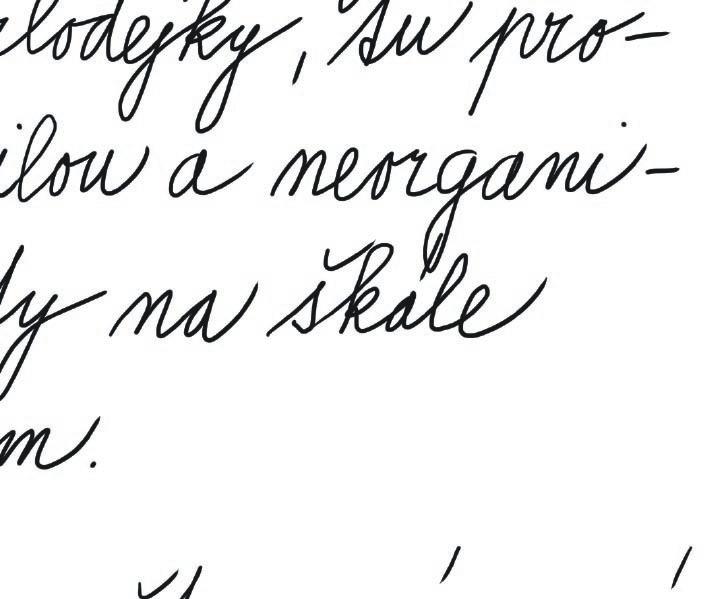 zlodejky, su pro-
ilou a neorgani-
na škále
m.